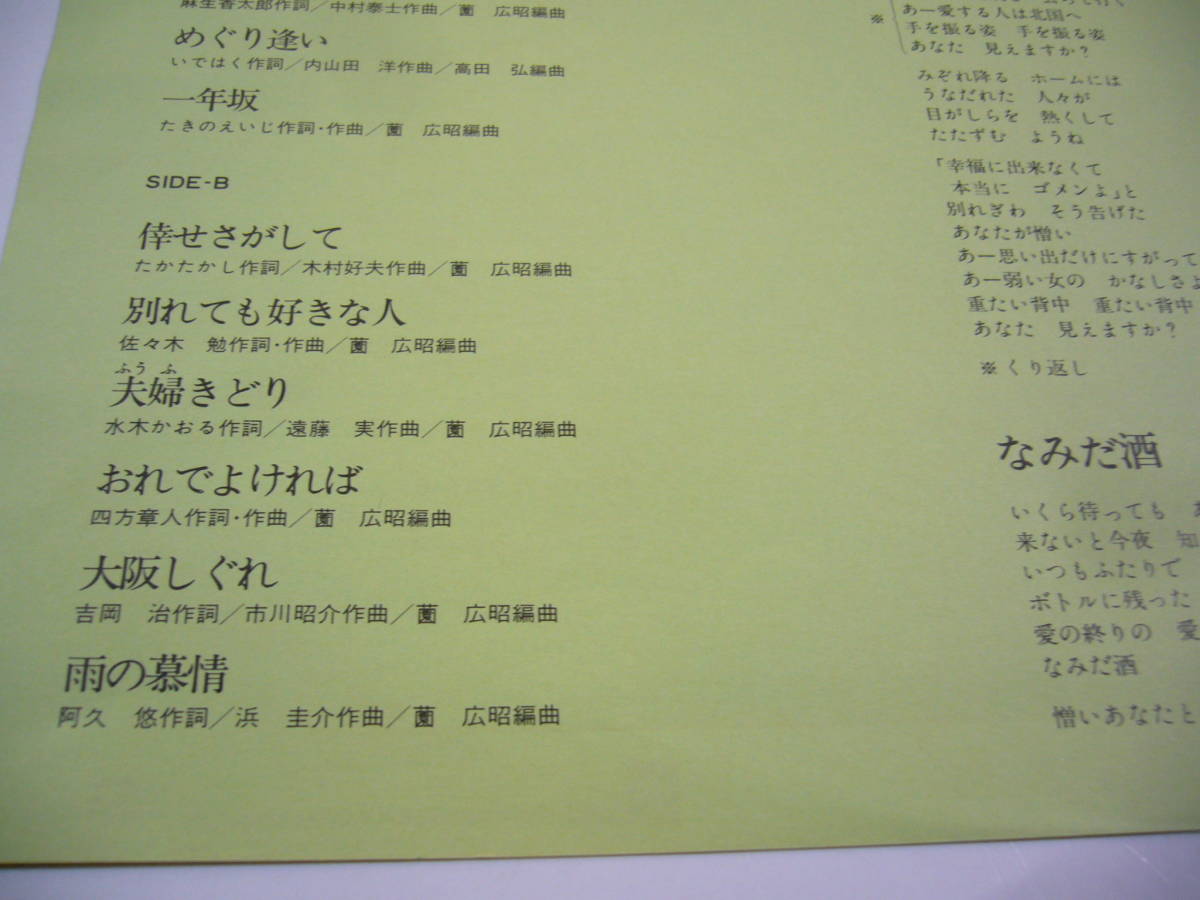 麻生香太郎作詞／中村泰士作曲／薗　広昭編曲
めぐり逢い
いではく作詞／内山田　洋作曲／高田　弘編曲
一年坂
たきのえいじ作詞・作曲／薗　広昭編曲
SIDE-B
倖せさがして
たかたかし作詞／木村好夫作曲／薗　広昭編曲
別れても好きな人
佐々木　勉作詞・作曲／薗　広昭編曲
ふうふ
夫婦きどり
水木かおる作詞／遠藤　実作曲／薗　広昭編曲
おれでよければ
四方章人作詞・作曲／薗　広昭編曲
大阪しぐれ
吉岡　治作詞／市川昭介作曲／薗　広昭編曲
雨の慕情
阿久　悠作詞／浜　圭介作曲／薗　広昭編曲
あー愛する人は北国へ
※
手を振る姿　手を振る姿
あなた　見えますか？
みぞれ降る　ホームには
うなだれた　人々が
目がしらを　熱くして
たたずむ　ようね
「幸福に出来なくて
本当に　ゴメンよ」と
別れぎわ　そう告げた
あなたが憎い
あー思い出だけにすがって
あー弱い女の　かなしさよ
重たい背中　重たい背中
あなた　見えますか？
※くり返し
なみだ酒
いくら待っても　あ
来ないと今夜　知
いつもふたりで
ボトルに残った
愛の終りの　愛
なみだ酒
憎いあなたと